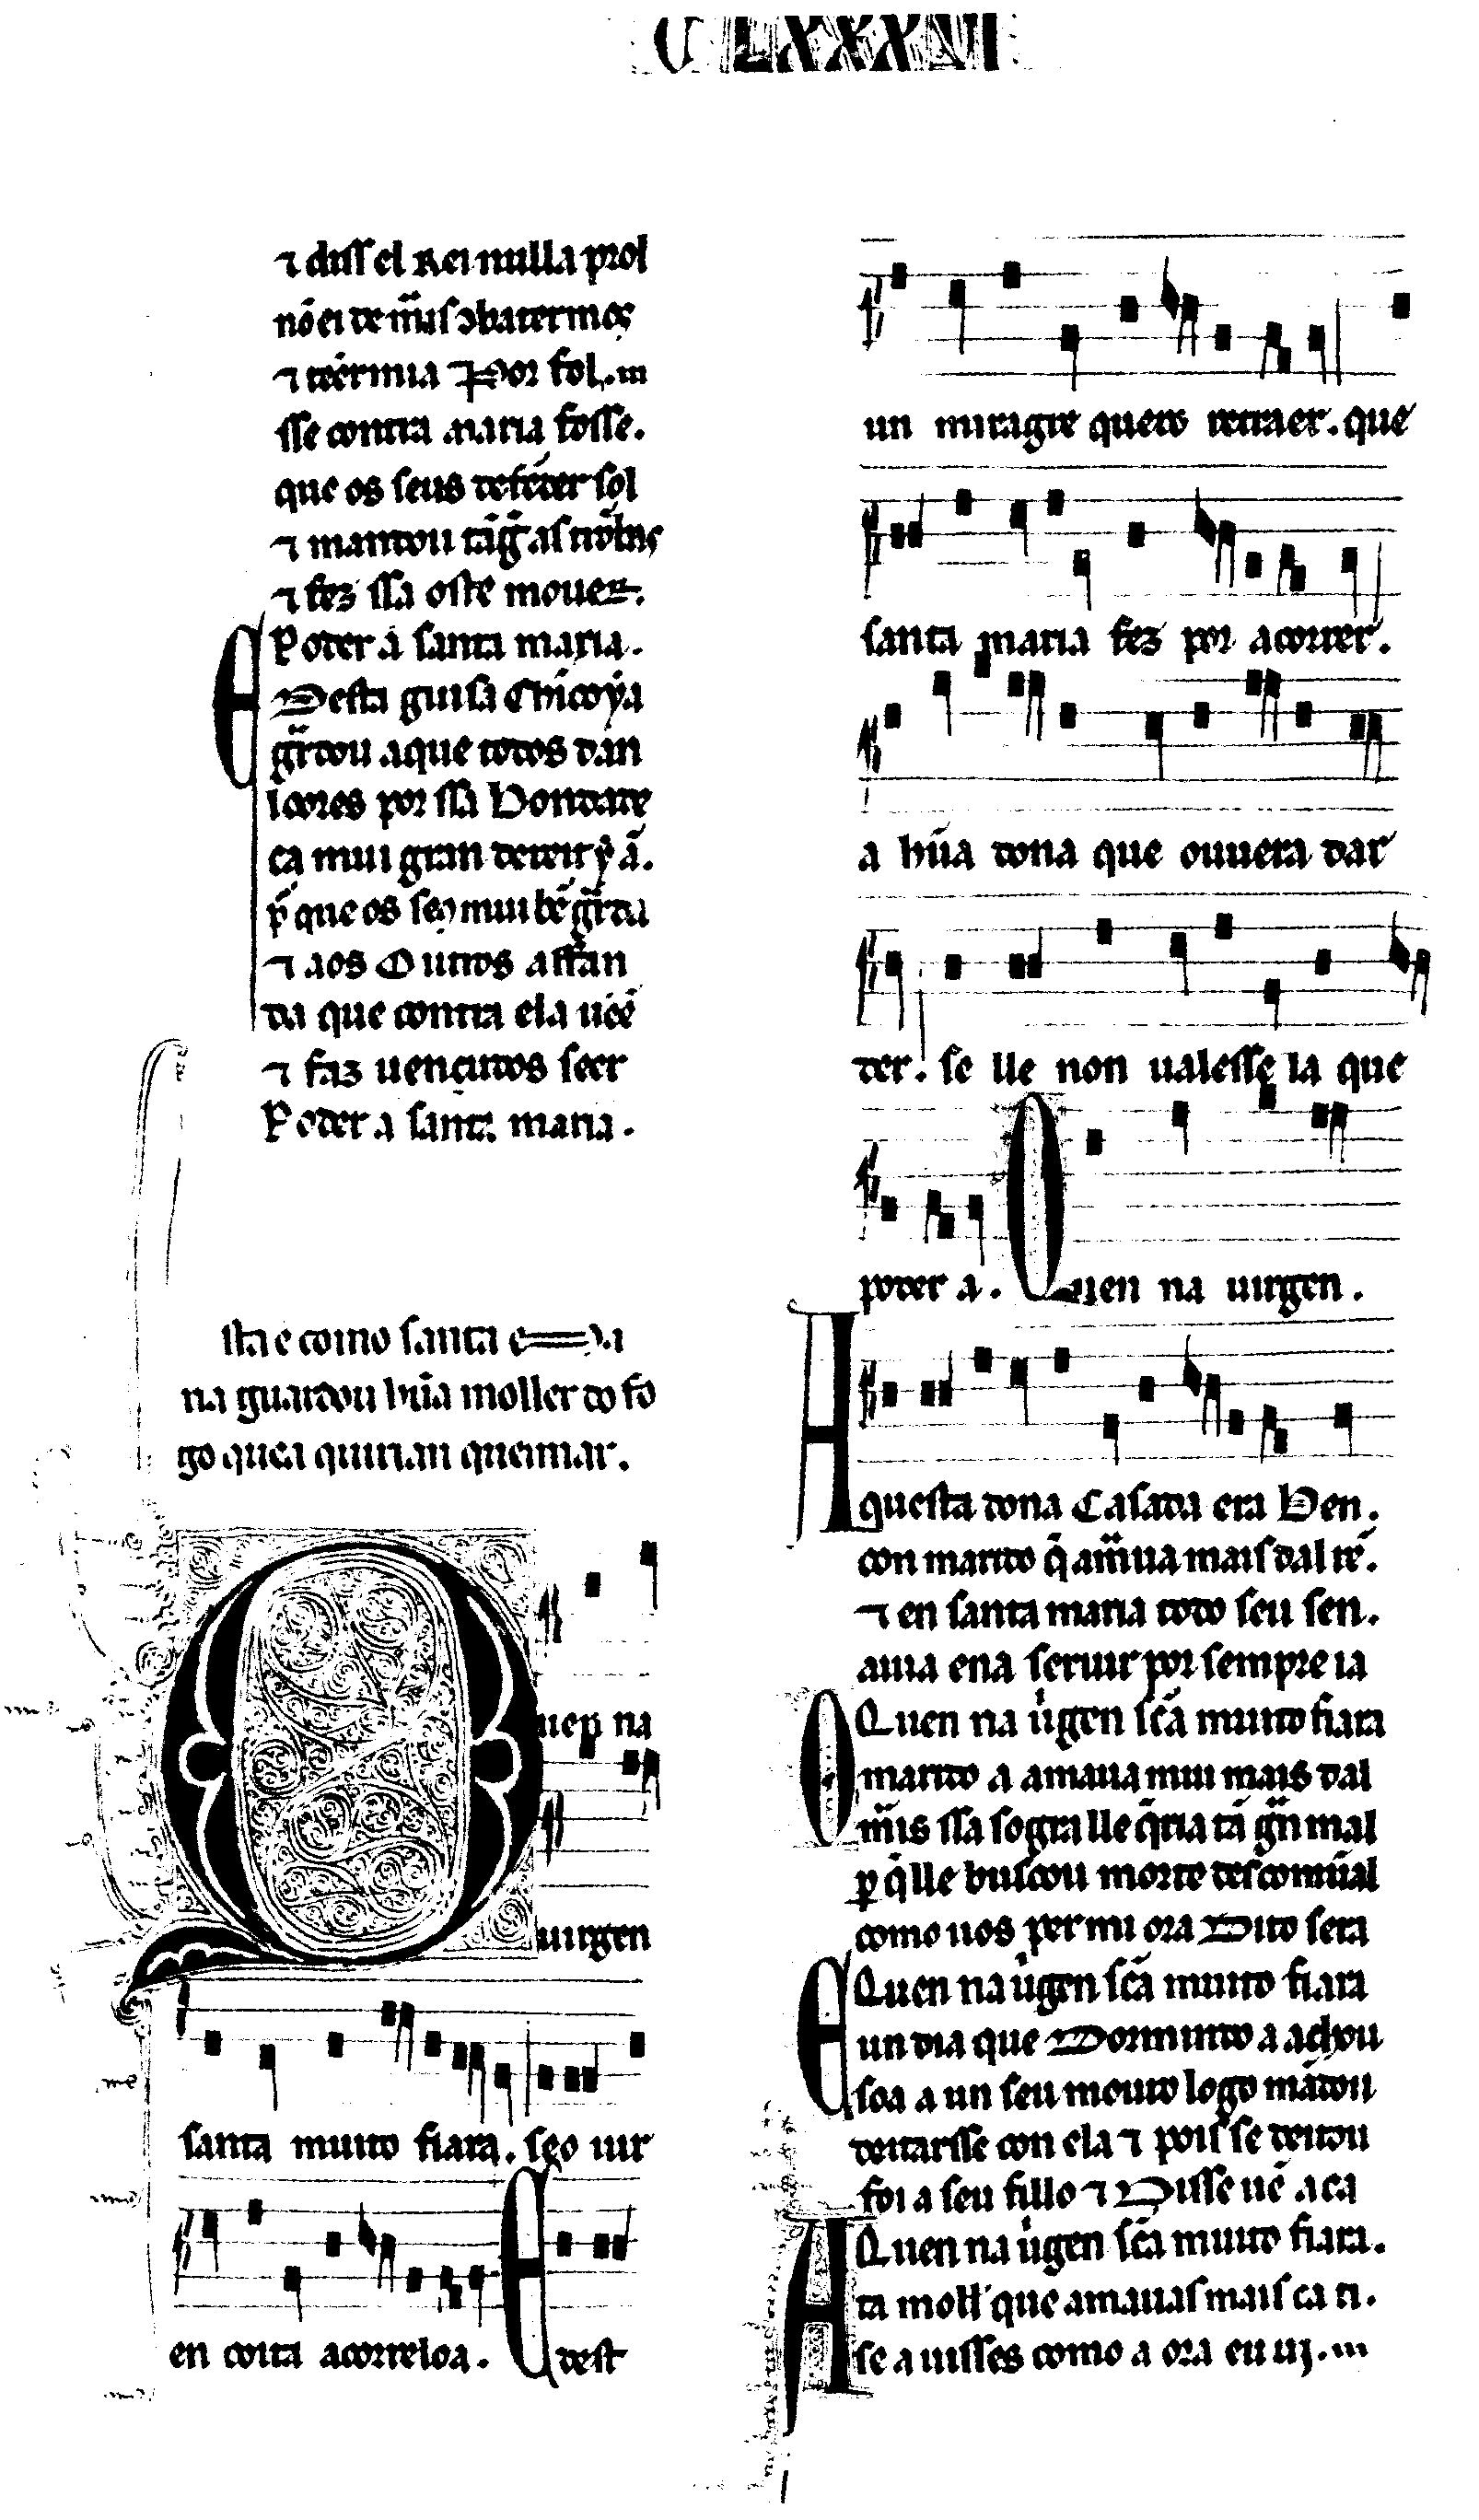 CLXXXVI
⁊ diss el Rei nulla prol
nō ei de
⁊ Por fol
sse contra maria fosse.
que os seus defēder sol
⁊ mandou
⁊ fez ssa oste mouer.
Poder á santa maria.
E Desta guisa Chincoya
gr̄dou a que todos dan
loores por ssa Bondade
ca mui gran dereit y á.
p̄ que os seꝯ mui bē gr̄da
⁊ aos Outros affan
da que contra ela uēē
⁊ faz uençudos seer
Poder a santa maria.
sta e como santa
na guardou hūa moller do fo
go que a querian queimar.
Quen na
uirgen
santa muito fiara. seo uir
en coita acorreloa. E dest
un miragre quero retraer. que
santa maria fez por acorrer.
a hūa dona que ouuera dar
der. se lle non ualesse la que
poder a. Quen na uirgen.
Aquesta dona Casada era Ben.
con marido q̄ amaua mais dal rē.
⁊ en santa maria todo seu sen.
auia ena seruir por sempre ia
Quen na uirgen scā muito fiara
O marido a amaua mui mais dal
mais ssa sogra lle q̄ria tā grā mal
per q̄ lle buscou morte descomūal
como uos per mi ora Dito sera
Quen na uirgen scā muito fiara
E un dia que Dormindo a achou
soa a un seu mouro logo mādou
deitarsse con ela ⁊ pois se deitou
foi a seu fillo ⁊ Disse uē aca
Quen na uirgen scā muito fiara.
A ta moll' que amauas mais ca ti.
se a uisses como a ora eu ui